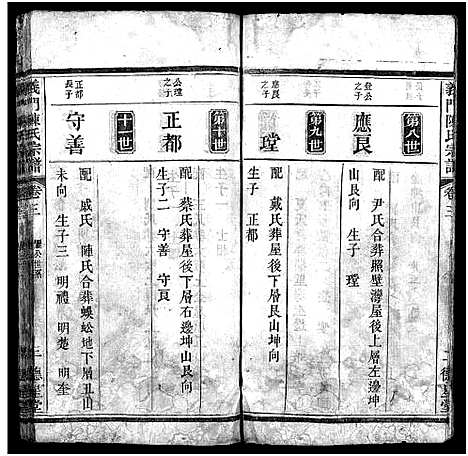 義門陳氏宗譜
卷三
二
德星堂
第八世
登公之子
應艮
配 尹氏合葬照壁灣屋後上層左邊坤
山艮向 生子 瑩
第九世
應艮之子
瑩
配 戴氏葬屋後下層艮山坤向
生子 正都
第十世
公瑩之子
正都
配 蔡氏葬屋後下層右邊坤山艮向
生子二 守善 守頁
十一世
正都長子
守善
配 戚氏 陳氏合葬蜈蚣地下層丑山
未向 生子三 明禮 明楚 明奎
義門陳氏宗譜
卷三
三 德星堂